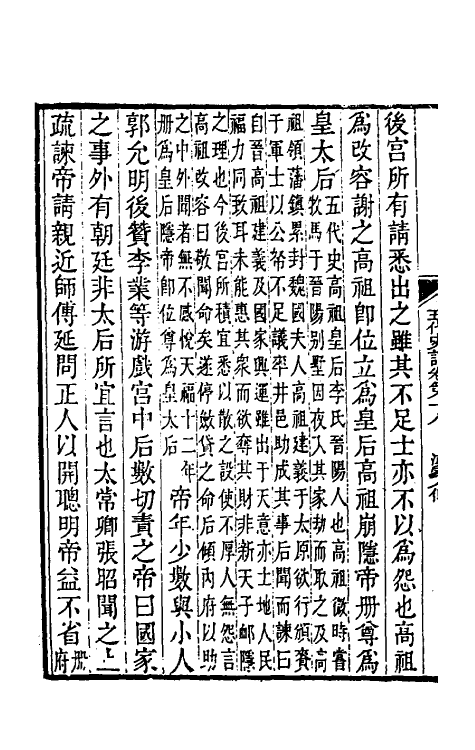 後宮所有請悉出之雖其不足士亦不以為怨也高祖
為改容謝之高祖即位立為皇后高祖崩隱帝册尊為
皇太后
五代史高祖皇后李氏晉陽人也高祖微時嘗
牧馬于晉陽別墅因夜入其家劫而取之及高
祖領藩鎮累封魏國夫人高祖建義于太原欲行頒賚
于軍士以公帑不足議率井邑助成其事后聞而諫曰
自晉高祖建義及國家興運雖出于天意亦土地人民
福力同致耳未能惠其衆而欲奪其財非新天子卹隱
之理也今後宮所積宜悉以散之設使不厚人無怨言
高祖改容曰敬聞命矣遂停斂貸之命后傾内府以助
之中外聞者無不感悅天福十二年
册為皇后隱帝即位尊為皇太后
帝年少數與小人
郭允明後贊李業等游戲宮中后數切責之帝曰國家
之事外有朝廷非太后所宜言也太常卿張昭聞之上
疏諫帝請親近師傅延問正人以開聰明帝益不省
册
府
五代史記卷第十八